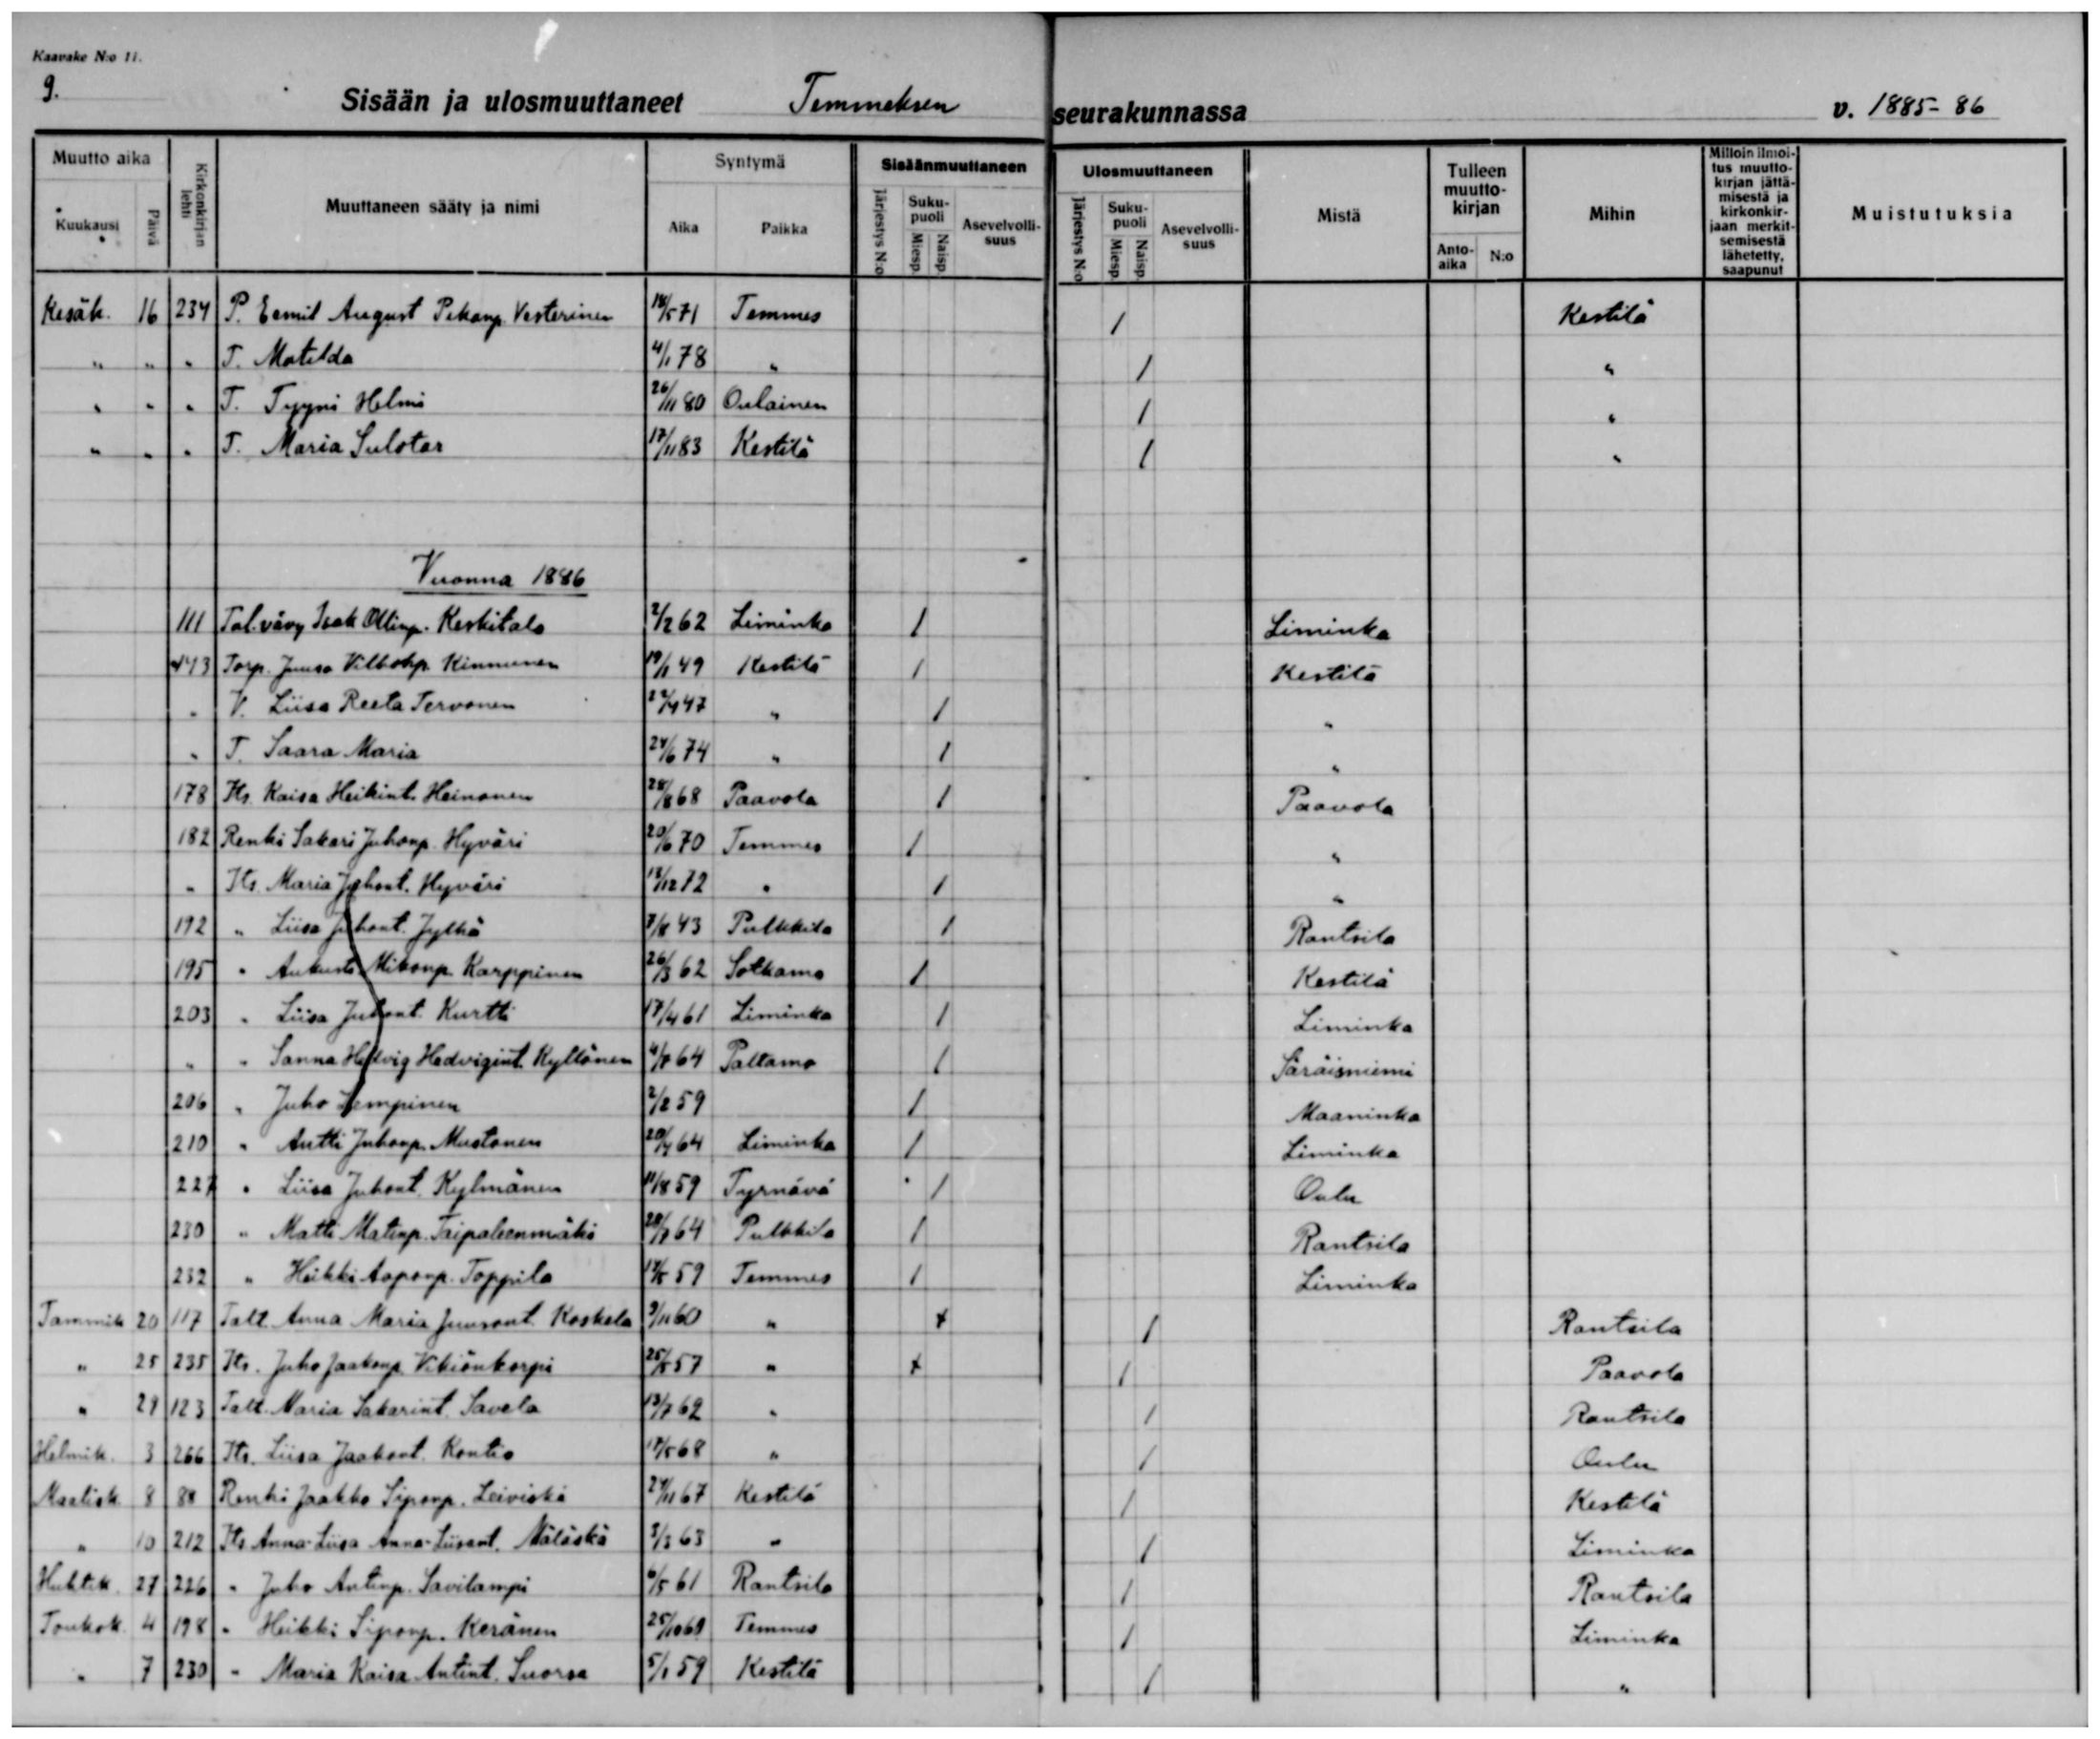 Kaavake N:o 11.
9. Sisään ja ulosmuuttaneet Temmeksen seurakunnassa v. 1885-86
Muutto aika Kirkonkirjan lehti Muuttaneen sääty ja nimi Syntymä Sisäänmuuttaneen Ulosmuuttaneen Mistä Tulleen muutto-kirjan Mihin Milloin ilmoi-tus muutto-kirjan jättä-misestä ja kirkonkir-jaan merkit-semisestä lähetetty, saapunut Muistutuksia
Kuukausi Päivä Aika Paikka Järjestys N:o Suku-puoli Miesp. Naisp. Asevelvolli-suus Järjestys N:o Suku-puoli Miesp. Naisp. Asevelvolli-suus Anto-aika N:o
Kesäk. 16 234 P. Eemil August Pekanp. Vesterinen 18/5 71 Temmes / Kestilä
" " " T. Matilda 4/1 78 " / "
" " " T. Tyyni Helmi 26/11 80 Oulainen / "
" " " T. Maria Sulotar 17/11 83 Kestilä / "
Vuonna 1886
111 Tal. vävy Isak Ollinp. Keskitalo 2/2 62 Liminka / Liminka
Torp. Juuso Vilhonp. Kinnunen 19/1 49 Kestilä / Kestilä
" V. Liisa Reeta Tervonen 47 " / "
" T. Saara Maria 24/6 74 " / "
178 Its. Kaisa Heikint. Heinonen 28/8 68 Paavola / Paavola
182 Renki Sakari Juhonp. Hyväri 20/6 70 Temmes / "
" Its. Maria Juhont. Hyväri 13/12 72 " / "
192 " Liisa Juhont. Jylhä 43 Pulkkila / Rantsila
195 " Aukusti Mikonp. Karppinen 26/3 62 Sotkamo / Kestilä
203 " Liisa Juhont. Kurtti 17/4 61 Liminka / Liminka
" " Sanna Hedvig Hedvigint. Kyllönen 64 Paltamo / Säräisniemi
206 " Juho Lempinen 2/2 59 / Maaninka
210 " Antti Juhonp. Mustonen 64 Liminka / Liminka
227 " Liisa Juhont. Kylmänen 11/8 59 Tyrnävä / Oulu
230 " Matti Matinp. Taipaleenmäki 64 Pulkkila / Rantsila
232 " Heikki Aaponp. Toppila 59 Temmes / Liminka
Tammik 20 117 Talt. Anna Maria Juusont. Koskela 9/11 60 " / Rantsila
" 25 235 Its. Juho Jaakonp. Vikiönkorpi 57 " / Paavola
" 29 123 Talt. Maria Sakarint. Savela 13/7 62 " / Rantsila
Helmik. 3 266 Its. Liisa Jaakont. Kontio 17/5 68 " / Oulu
Maalisk. 8 88 Renki Jaakko Siponp. Leiviskä 24/11 67 Kestilä / Kestilä
" 10 212 Its. Anna-Liisa Anna-Liisant. Mäläskä 3/3 63 " / Liminka
Huhtik. 27 226 " Juho Antinp. Savilampi 6/5 61 Rantsila / Rantsila
Toukok. 4 198 " Heikki Siponp. Keränen 25/10 Temmes / Liminka
" 7 230 " Maria Kaisa Antint. Suorsa 5/1 59 Kestilä / "